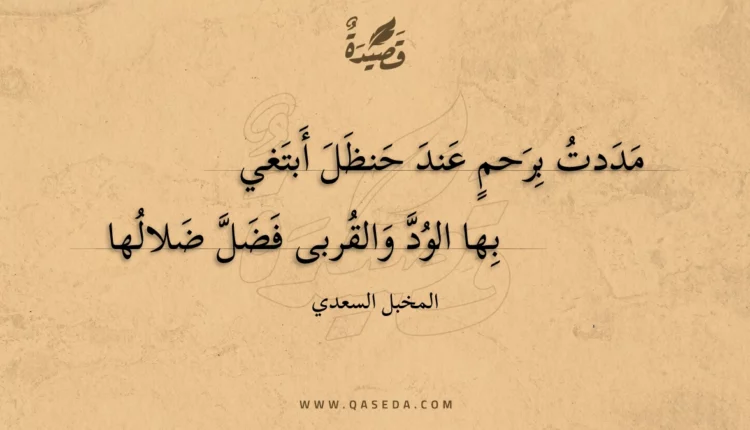 قَصِيدَةٌ
مَدَدتُ بِرَحمٍ عَندَ حَنظَلَ أَبتَغي
بِها الوُدَّ وَالقُربى فَضَلَّ ضَلالُها
المخبل السعدي
WWW.QASEDA.COM